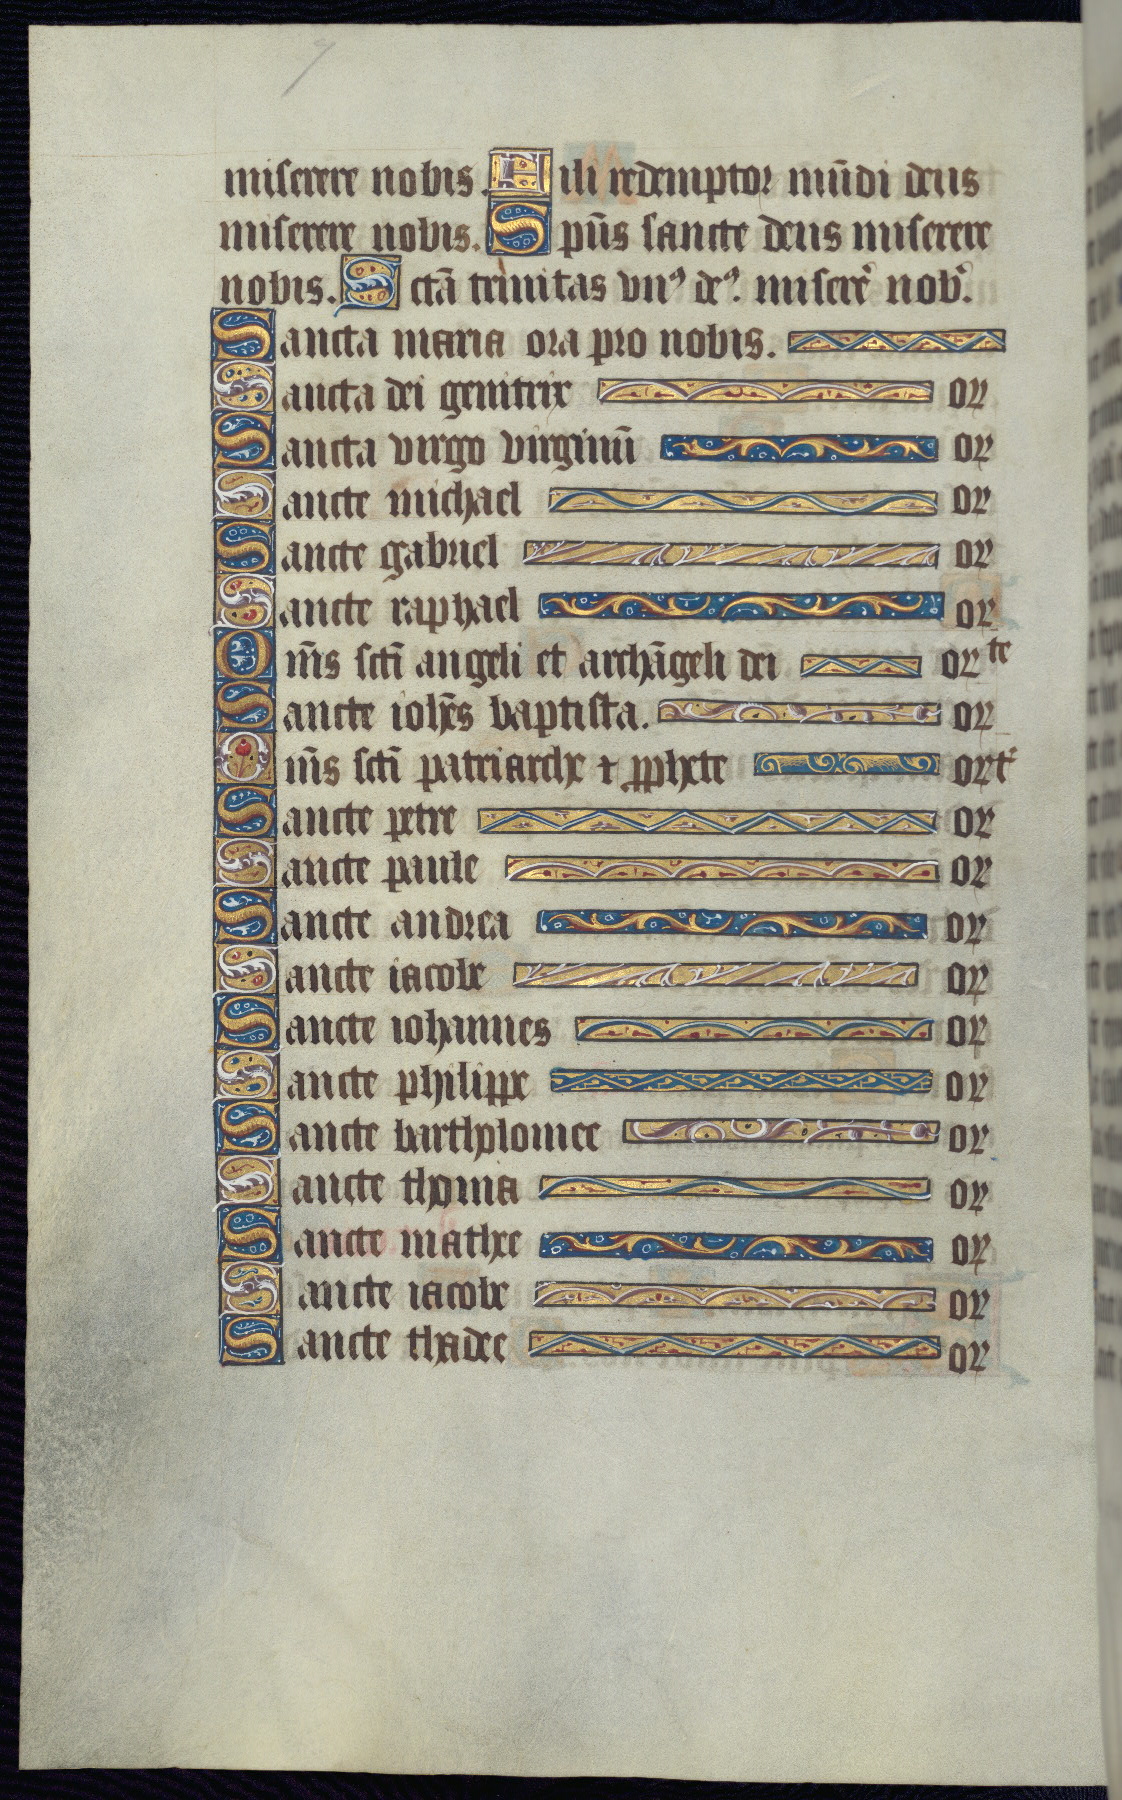 miserere nobis. Fili redemptor mūdi deus
miserere nobis. Spūs sancte deus miserere
nobis. Sctā trinitas vnꝰ deꝰ. miserē nob̄.
Sancta maria ora pro nobis.
Sancta dei genitrix or
Sancta virgo virginū or
Sancte michael or
Sancte gabriel or
Sancte raphael or
Om̄s sctī angeli et archāgeli dei orte
Sancte ioħes baptista. or
Om̄s sctī patriarche ⁊ ꝓphete ort̄
Sancte petre or
Sancte paule or
Sancte andrea or
Sancte iacobe or
Sancte iohannes or
Sancte philippe or
Sancte bartholomee or
Sancte thoma or
Sancte mathee or
Sancte iacobe or
Sancte thadee or